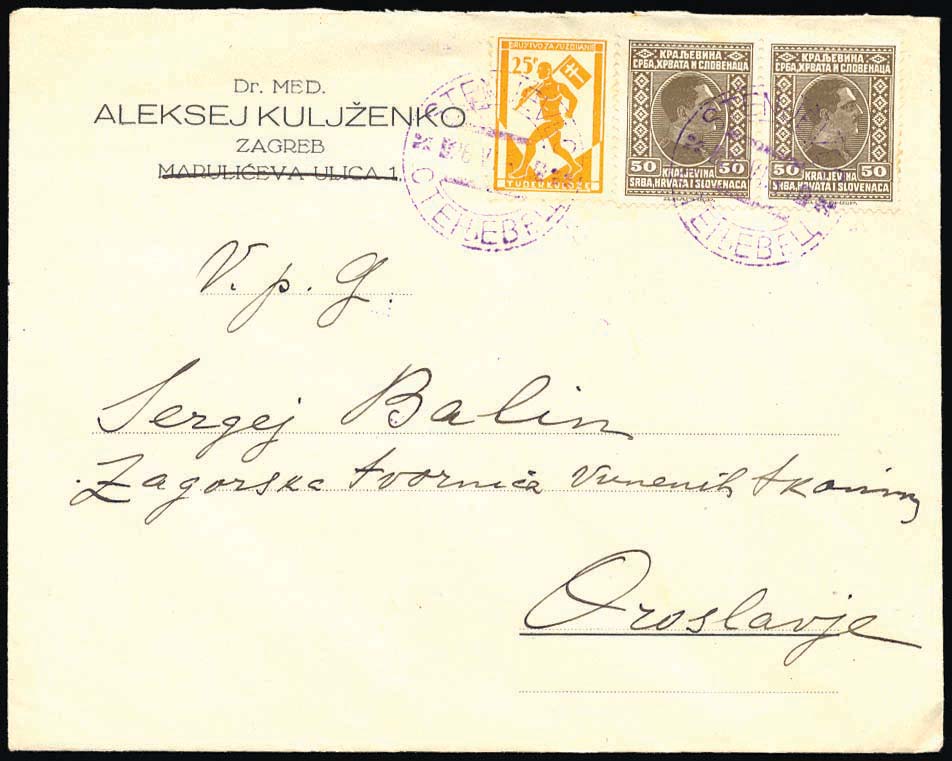 Dr. MED.
ALEKSEJ KULJŽENKO
ZAGREB
MARULIĆEVA ULICA 1
DRUŠTVO ZA SUZBIJANJE
25P
TUBERKULOZE
КРАЉЕВИНА
СРБА, ХРВАТА И СЛОВЕНАЦА
50 KRALJEVINA 50
SRBA, HRVATA I SLOVENACA
КРАЉЕВИНА
СРБА, ХРВАТА И СЛОВЕНАЦА
50 KRALJEVINA 50
SRBA, HRVATA I SLOVENACA
СТЕЊЕВЕЦ
СТЕЊЕВЕЦ
V. p. G.
Sergej Balin
Zagorska tvornica vunenih tkanina
Oroslavje